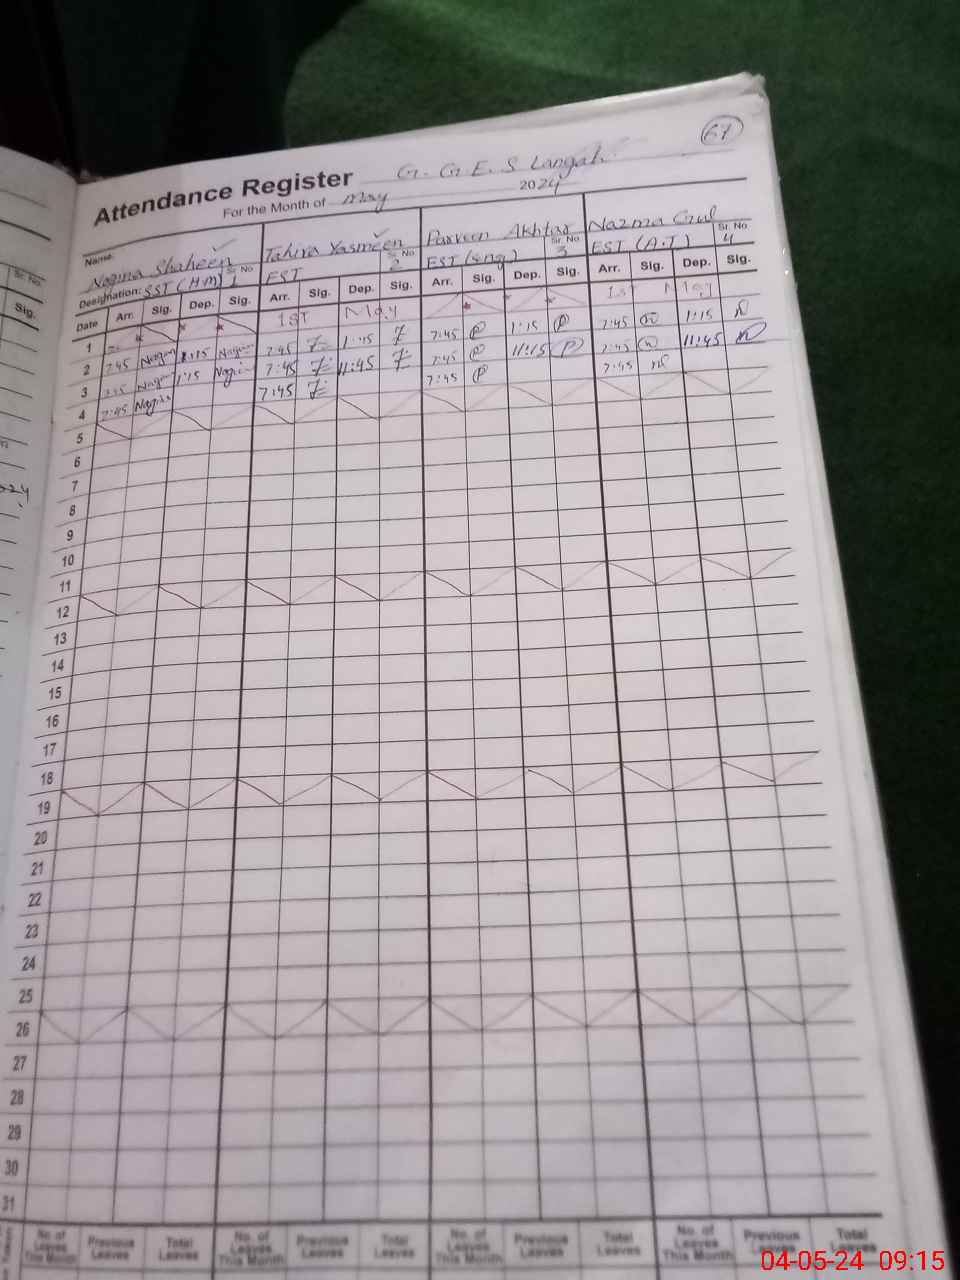 67
Attendance Register G. G. E. S Langah
For the Month of May 2024
Name: Nagina Shaheen Tahira Yasmeen Parveen Akhtar Nazma Gul
Sr. No 1 Sr. No 2 Sr. No 3 Sr. No 4
Designation: SST (H.M) EST EST (Eng) EST (A.T)
Date Arr. Sig. Dep. Sig. Arr. Sig. Dep. Sig. Arr. Sig. Dep. Sig. Arr. Sig. Dep. Sig.
1 1ST May 1ST May
2 7:45 1:15 7:45 1:15 7:45 P 1:15 P 7:45 1:15
3 7:45 1:15 7:45 11:45 7:45 P 11:15 P 7:45 11:45
4 7:45 Nagina 7:45 7:45 P 7:45
5
6
7
8
9
10
11
12
13
14
15
16
17
18
19
20
21
22
23
24
25
26
27
28
29
30
31
No. of Leaves This Month Previous Leaves Total Leaves No. of Leaves This Month Previous Leaves Total Leaves No. of Leaves This Month Previous Leaves Total Leaves No. of Leaves This Month Previous Leaves Total Leaves
Sr. No.
Sig.
04-05-24 09:15